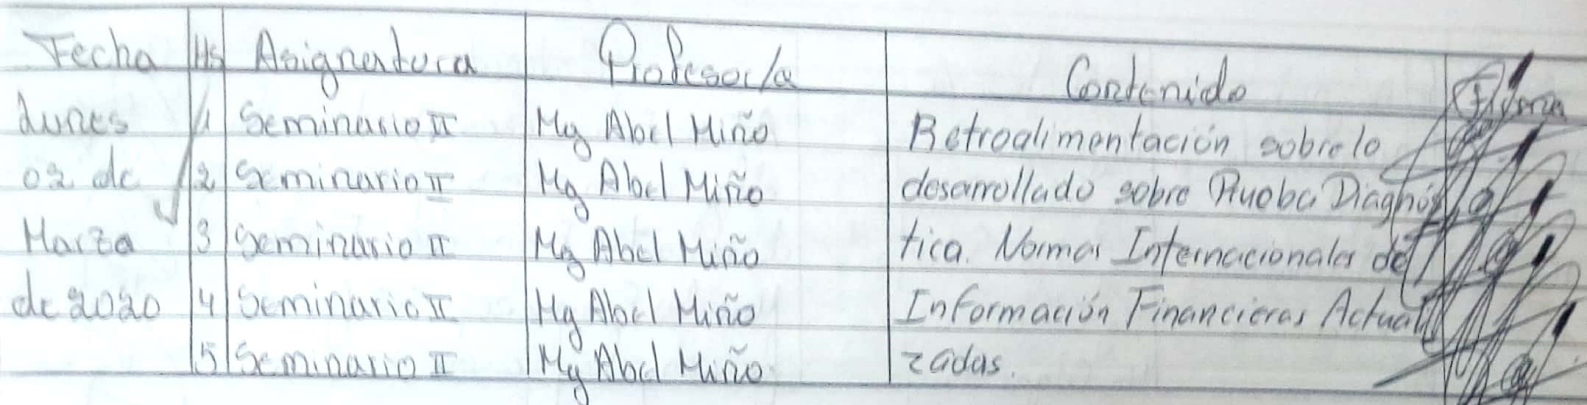 Fecha Hs Asignatura Profesor/a Contenido Firma
Lunes 1 Seminario II Mg Abel Miño Retroalimentación sobre lo
02 de 2 Seminario II Mg Abel Miño desarrollado sobre Prueba Diagnós
Marzo 3 Seminario II Mg Abel Miño tica. Normas Internacionales de
de 2020 4 Seminario II Mg Abel Miño Información Financieras Actuali
5 Seminario II Mg Abel Miño zadas.